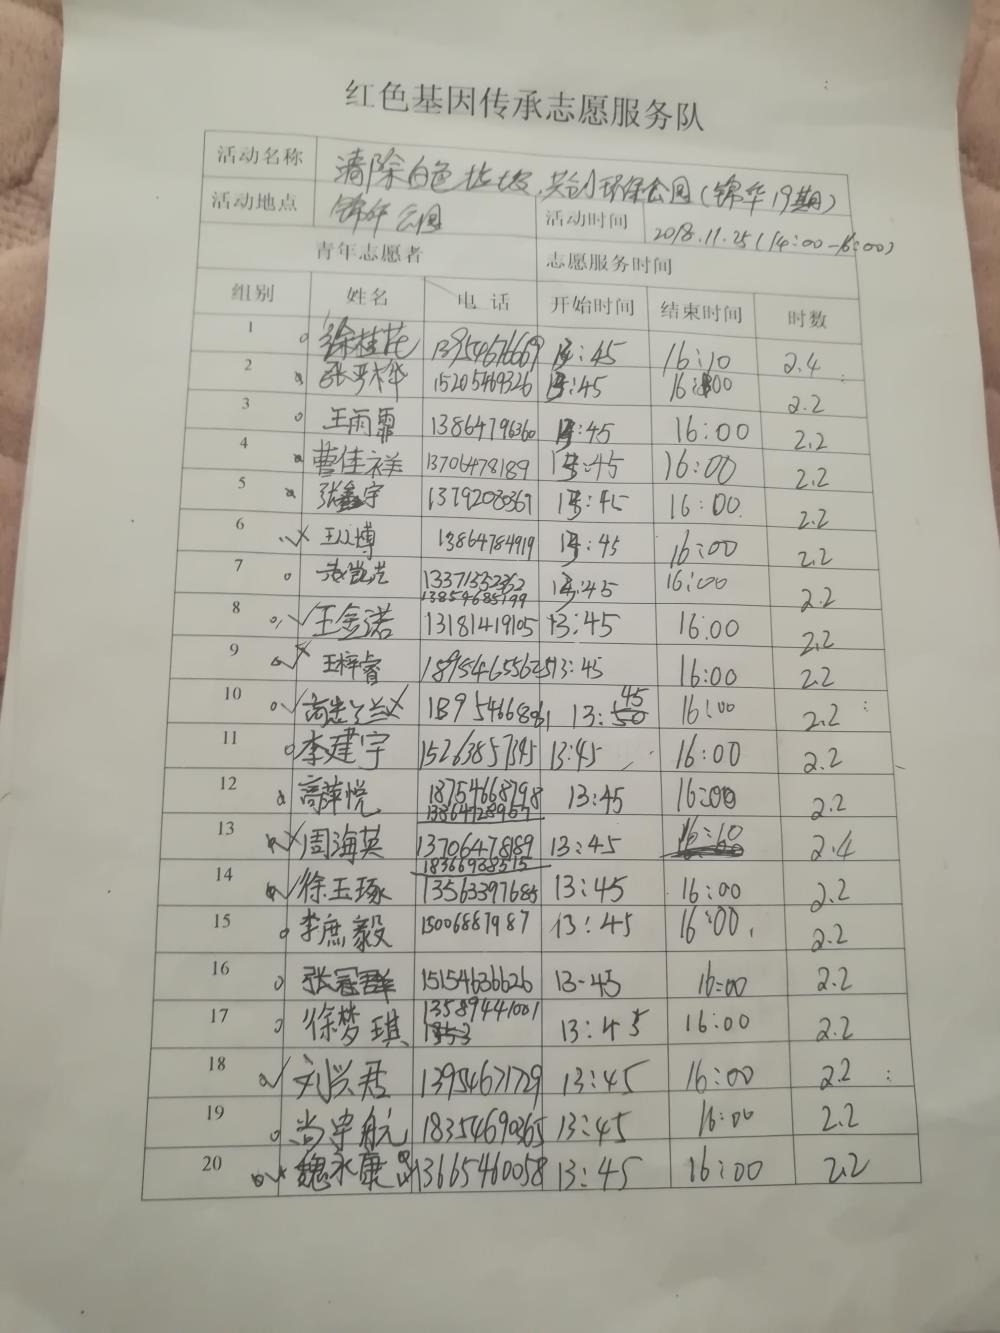 红色基因传承志愿服务队
活动名称 清除白色垃圾,共创环保公园(锦华19期)
活动地点 锦华公园 活动时间 2018.11.25(14:00-16:00)
青年志愿者 志愿服务时间
组别 姓名 电话 开始时间 结束时间 时数
1 徐桂花 13954676669 13:45 16:10 2.4
2 张亚桦 15205469326 13:45 16:00 2.2
3 王雨霏 13864796360 13:45 16:00 2.2
4 曹佳祥 13706478189 13:45 16:00 2.2
5 张鑫宇 13792080367 13:45 16:00 2.2
6 13864784919 13:45 16:00 2.2
7 13371552362 13:45 16:00 2.2
13854685199
8 王金诺 13181419105 13:45 16:00 2.2
9 王梓睿 18954655625 13:45 16:00 2.2
10 13:45 16:00 2.2
11 李建宇 15263857345 13:45 16:00 2.2
12 高萍悦 18754668798 13:45 16:00 2.2
13864728957
13 周海英 13706478189 13:45 2.4
18366938515
14 徐玉琢 13563397685 13:45 16:00 2.2
15 李庶毅 15006887987 13:45 16:00. 2.2
16 张冠群 15154636626 13-45 16:00 2.2
17 徐梦琪 13589441001 13:45 16:00 2.2
18 刘兴君 13954671729 13:45 16:00 2.2
19 尚宇航 18354690365 13:45 16:00 2.2
20 魏永康 13665460058 13:45 16:00 2.2